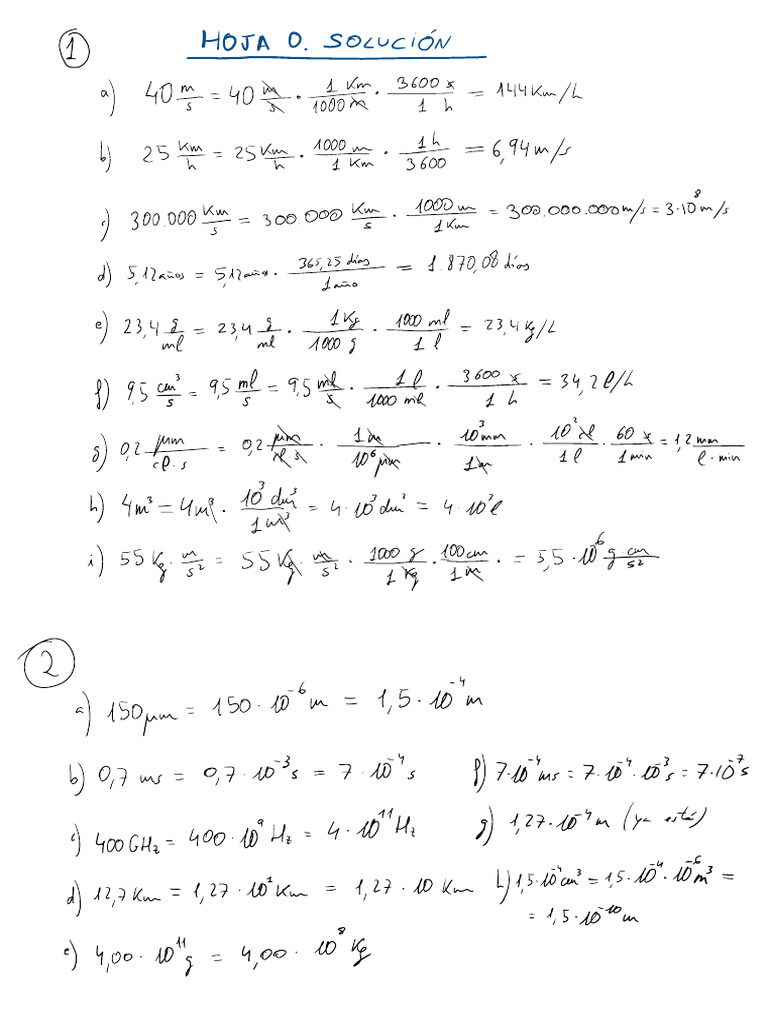 HOJA 0. SOLUCIÓN
1
a) 40 m/s = 40 m/s · 1 Km/1000 m · 3600 s/1 h = 144 Km/h
b) 25 Km/h = 25 Km/h · 1000 m/1 Km · 1 h/3600 = 6,94 m/s
c) 300.000 Km/s = 300.000 Km/s · 1000 m/1 Km = 300.000.000 m/s = 3·10⁸ m/s
d) 5,12 años = 5,12 años · 365,25 días/1 año = 1.870,08 días
e) 23,4 g/ml = 23,4 g/ml · 1 Kg/1000 g · 1000 ml/1 l = 23,4 Kg/L
f) 9,5 cm³/s = 9,5 ml/s = 9,5 ml/s · 1 l/1000 ml · 3600 s/1 h = 34,2 l/h
g) 0,2 μm/cl·s = 0,2 μm/cl s · 1 m/10⁶ μm · 10³ mm/1 m · 10² cl/1 l · 60 s/1 min = 1,2 mm/l·min
h) 4 m³ = 4 m³ · 10³ dm³/1 m³ = 4·10³ dm³ = 4·10³ l
i) 55 Kg · m/s² = 55 Kg · m/s² · 1000 g/1 Kg · 100 cm/1 m · = 5,5·10⁶ g cm/s²
2
a) 150 μm = 150·10⁻⁶ m = 1,5·10⁻⁴ m
b) 0,7 ms = 0,7·10⁻³ s = 7·10⁻⁴ s
c) 400 GHz = 400·10⁹ Hz = 4·10¹¹ Hz
d) 12,7 Km = 1,27·10² Km = 1,27·10 Km
e) 4,00·10¹¹ g = 4,00·10⁸ Kg
f) 7·10⁻⁴ ms = 7·10⁻⁴·10⁻³ s = 7·10⁻⁷ s
g) 1,27·10⁻⁴ m (ya está)
h) 1,5·10⁻⁴ cm³ = 1,5·10⁻⁴·10⁻⁶ m³ =
= 1,5·10⁻¹⁰ m